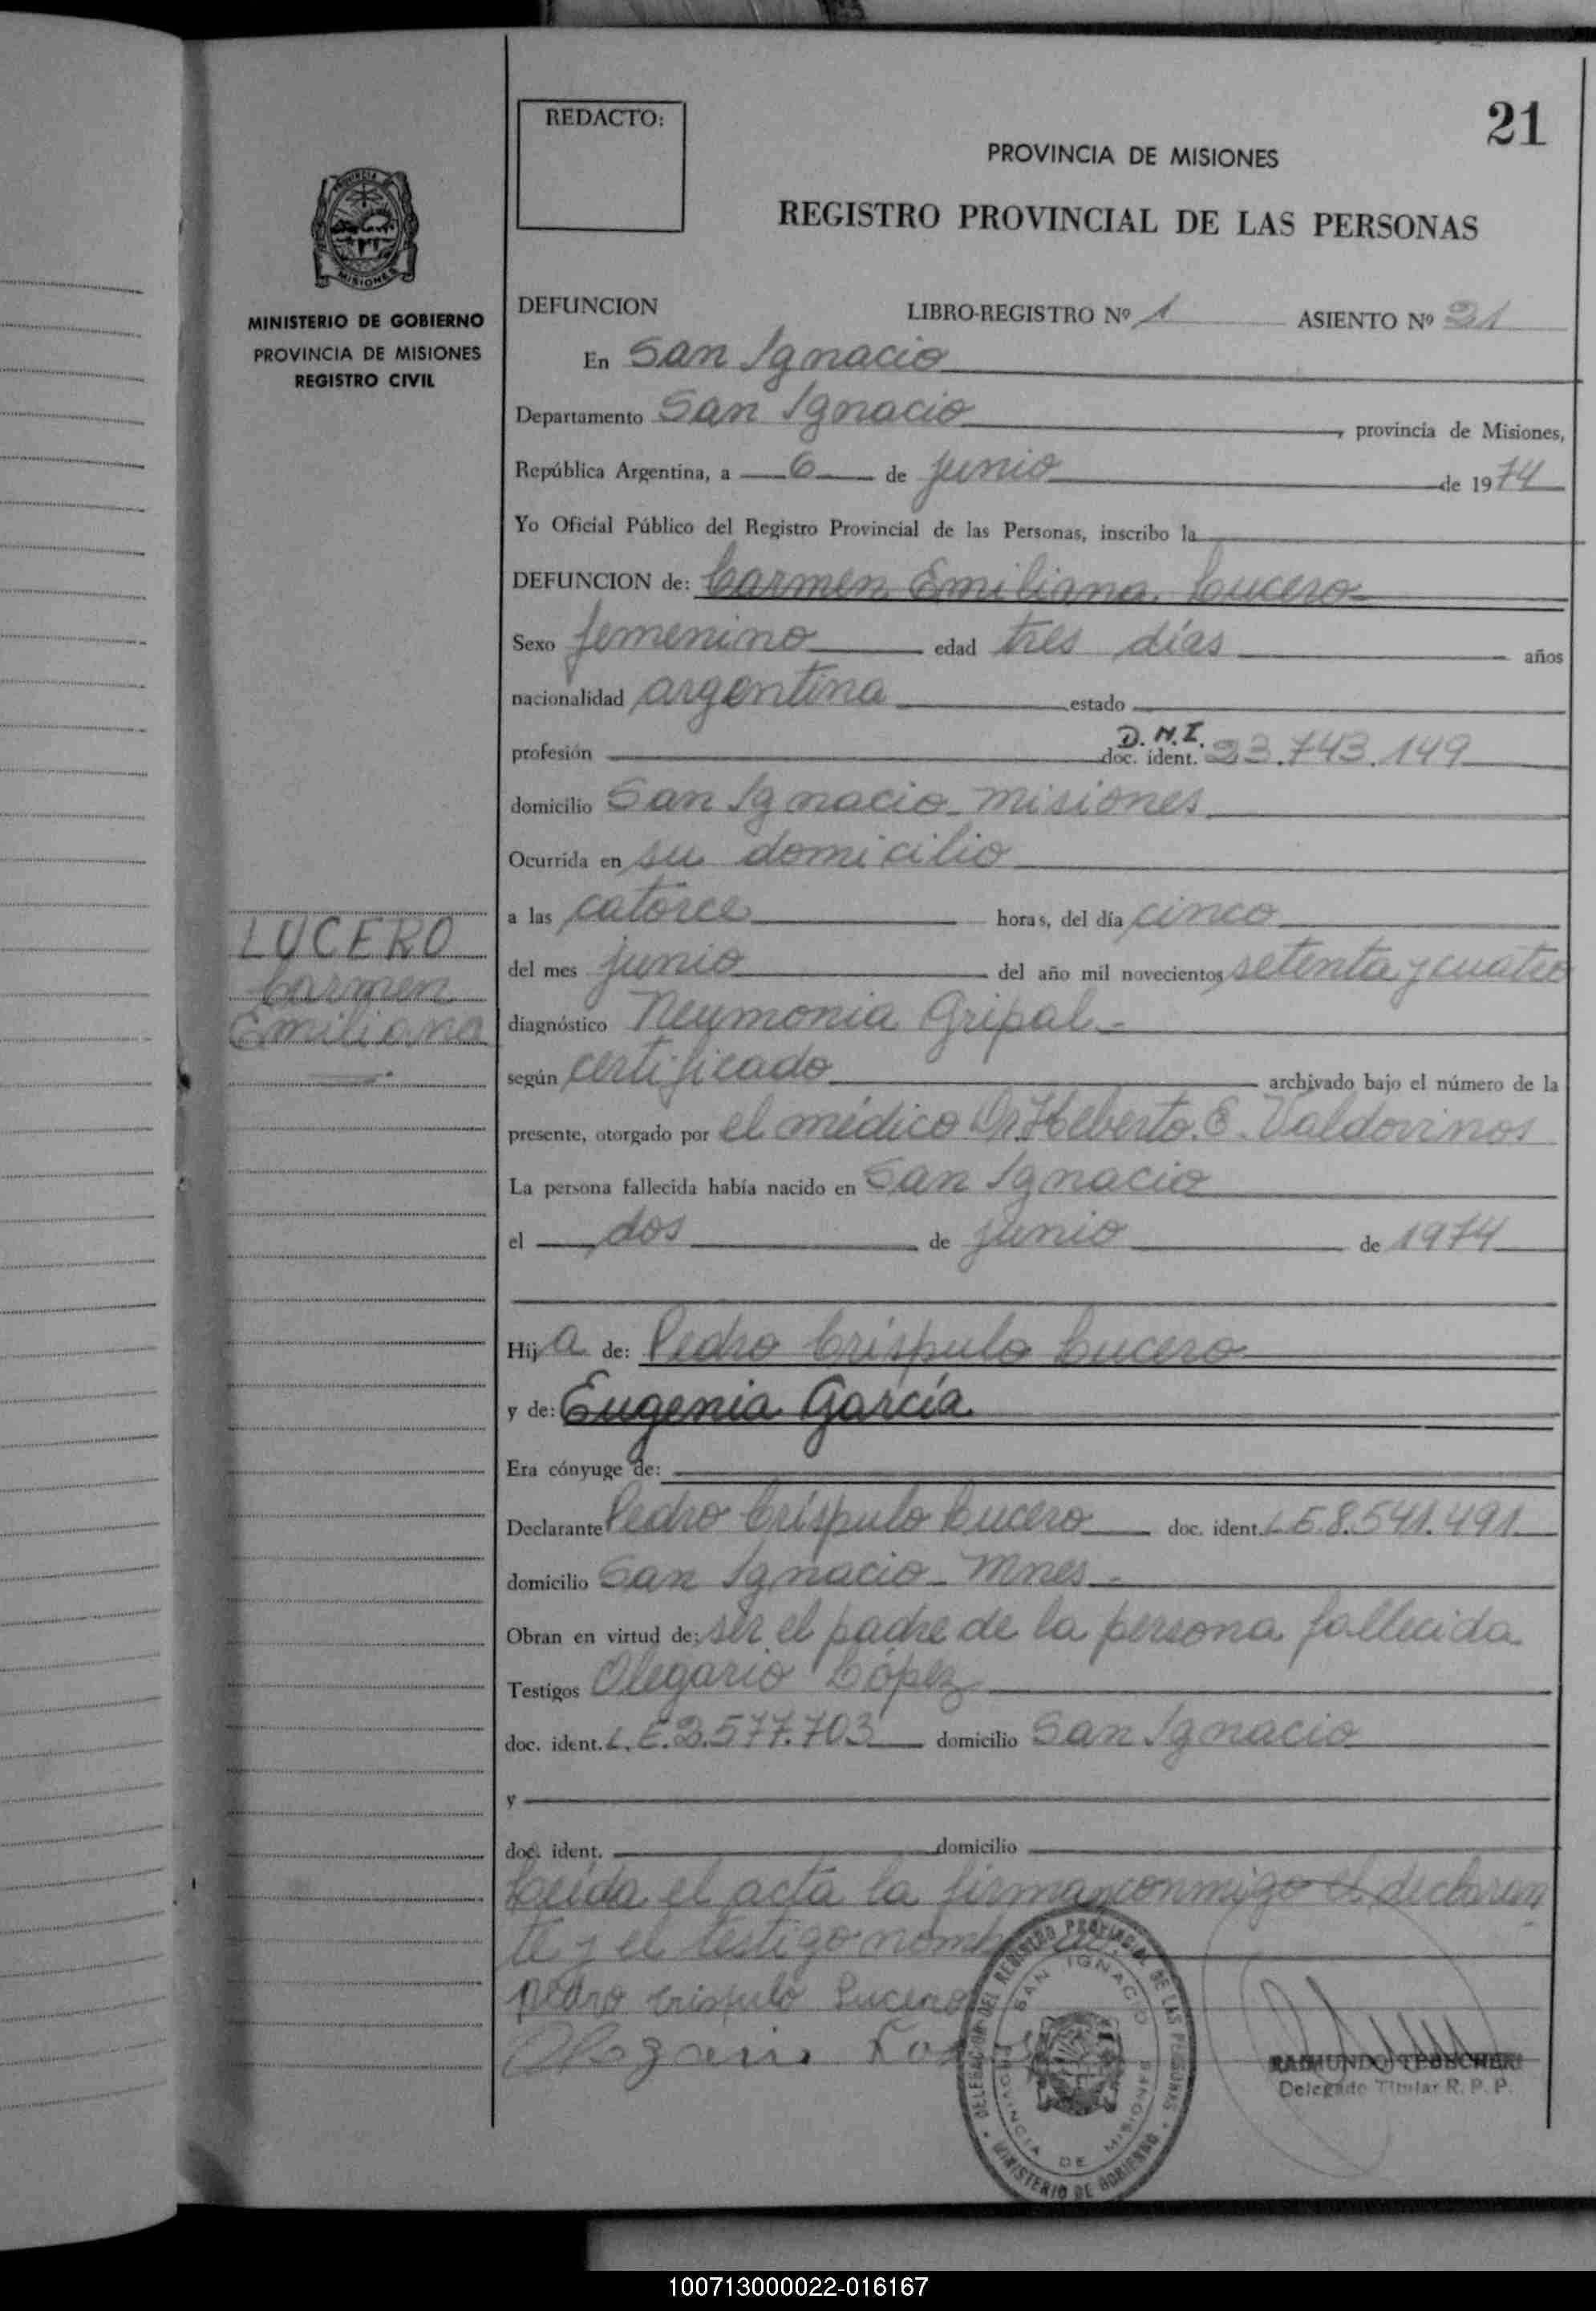 21
REDACTO:
PROVINCIA DE MISIONES
REGISTRO PROVINCIAL DE LAS PERSONAS
PROVINCIA DE
MISIONES
MINISTERIO DE GOBIERNO
PROVINCIA DE MISIONES
REGISTRO CIVIL
DEFUNCION LIBRO-REGISTRO Nº 1 ASIENTO Nº 21
En San Ignacio
Departamento San Ignacio, provincia de Misiones,
República Argentina, a 6 de junio de 1974
Yo Oficial Público del Registro Provincial de las Personas, inscribo la
DEFUNCION de: Carmen Emiliana Lucero
Sexo femenino edad tres días años
nacionalidad argentina estado
profesión D.N.I. doc. ident. 23.743.149
domicilio San Ignacio - misiones
Ocurrida en su domicilio
a las catorce horas, del día cinco
del mes junio del año mil novecientos setenta y cuatro
LUCERO
Carmen
Emiliana
diagnóstico Neumonia Gripal.-
según certificado archivado bajo el número de la
presente, otorgado por el médico Dr. Helberto E. Valdovinos
La persona fallecida había nacido en San Ignacio
el dos de junio de 1974
Hija de: Pedro Críspulo Lucero
y de: Eugenia García
Era cónyuge de:
Declarante Pedro Críspulo Lucero doc. ident. L.E.8.541.491
domicilio San Ignacio - Mnes.-
Obran en virtud de: ser el padre de la persona fallecida
Testigos Olegario López
doc. ident. L.E.2.577.703 domicilio San Ignacio
y
doc. ident. domicilio
Leida el acta la firman conmigo el declaran
te y el testigo
Pedro Crispulo Lucero
DELEGACION DEL REGISTRO PROVINCIAL DE LAS PERSONAS
SAN IGNACIO
PROVINCIA DE MISIONES
MINISTERIO DE GOBIERNO
RAIMUNDO
Delegado Titular R. P. P.
100713000022-016167